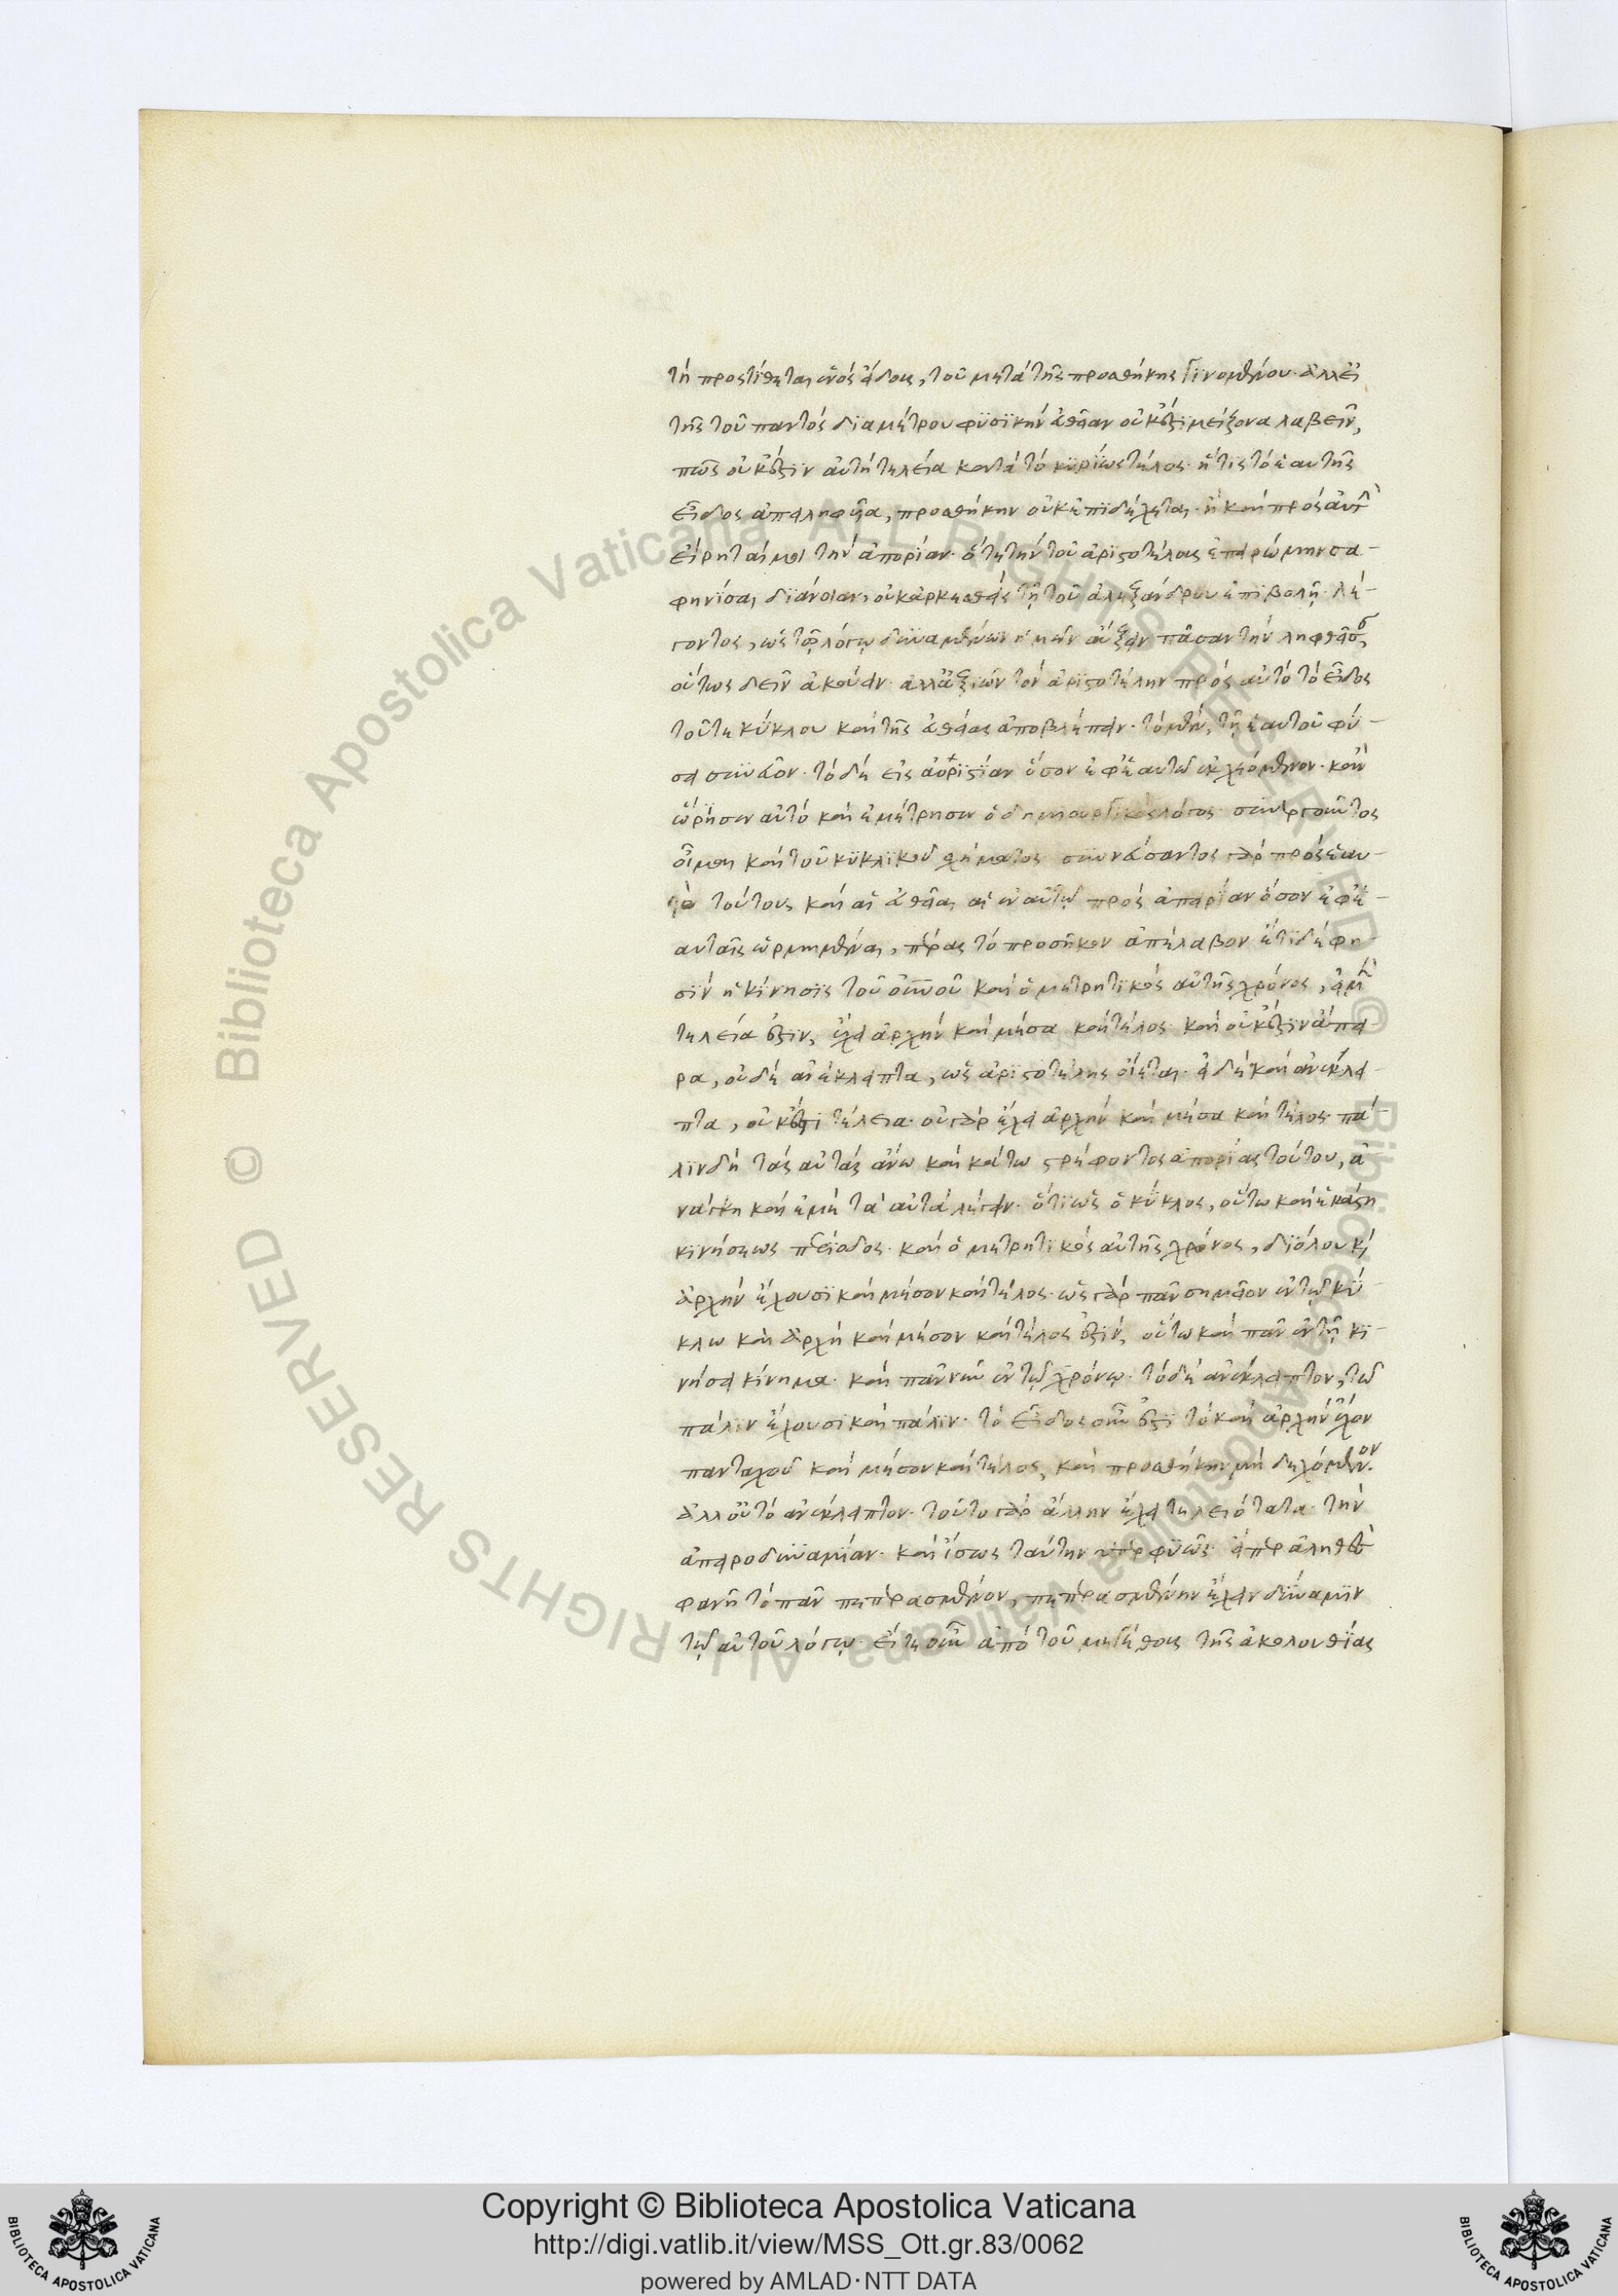 τη προστίθεται ἑνὸς εἴδους, τοῦ μετὰ τῆς προσθήκης γινομένου. ἀλλ' εἰ
τῆς τοῦ παντὸς διαμέτρου φυσικὴν εὐθεῖαν οὐκ ἔστι μείζονα λαβεῖν,
πῶς οὐκ ἔστιν αὐτὴ τελεία κατὰ τὸ κυρίως τέλος. ἥτις τὸ ἑαυτῆς
εἶδος ἀπειληφυῖα, προσθήκην οὐκ ἐπιδέχεται. ἢ καὶ πρὸς αὐτὴν
εἴρηταί μοι τὴν ἀπορίαν. ὅτε τὴν τοῦ ἀριστοτέλους ἐπειρώμην σα-
φηνίσαι διάνοιαν, οὐκ ἀρκεσθεὶς τῇ τοῦ ἀλεξάνδρου ἐπιβολῇ. λέ-
γοντος, ὡς τῷ λόγῳ δυναμένων ἡμῶν αὔξειν πᾶσαν τὴν ληφθεῖσαν,
οὕτως δεῖν ἀκούειν. ἀλλ' ἀξιῶν τὸν ἀριστοτέλην πρὸς αὐτὸ τὸ εἶδος
τοῦ τε κύκλου καὶ τῆς εὐθείας ἀποβλέπειν. τὸ μὲν, τῇ ἑαυτοῦ φύ-
σει συνιόν. τὸ δὲ εἰς ἀοριστίαν ὅσον ἐφ' ἑαυτῷ ἐκχεόμενον. κἂν
ὥρισεν αὐτὸ καὶ ἐμέτρησεν ὁ δημιουργικὸς λόγος συνεργοῦντος
οἶμαι καὶ τοῦ κυκλικοῦ σχήματος συννεύσαντος γὰρ πρὸς ἑαυ-
τὸ τούτου, καὶ αἱ εὐθεῖαι αἱ ἐν αὐτῷ πρὸς ἀπειρίαν ὅσον ἐφ' ἑ-
αυταῖς ὡρμημέναι, πέρας τὸ προσῆκον ἀπέλαβον ἔτι δέ φη-
σιν ἡ κίνησις τοῦ οὐνοῦ καὶ ὁ μετρητικὸς αὐτῆς χρόνος, εἰ μὲν
τελεία ἐστιν, ἔχει ἀρχὴν καὶ μέσα καὶ τέλος καὶ οὐκ ἔστιν ἄπει-
ρα, οὐδὲ ἀνέκλειπτα, ὡς ἀριστοτέλης οἴεται. εἰ δὲ καὶ ἀνέκλει-
πτα, οὐκ ἔστι τέλεια. οὐ γὰρ ἔχει ἀρχὴν καὶ μέσα καὶ τέλος. πά-
λιν δὴ τὰς αὐτὰς ἄνω καὶ κάτω στρέφοντος ἀπορίας τούτου, ἀ
νάγκη καὶ ἐμὲ τὰ αὐτὰ λέγειν. ὅτι ὡς ὁ κύκλος, οὕτω καὶ ἑκάστη
κινήσεως περίοδος. καὶ ὁ μετρητικὸς αὐτῆς χρόνος, διόλου καὶ
ἀρχὴν ἔχουσι καὶ μέσον καὶ τέλος. ὡς γὰρ πᾶν σημεῖον ἐν τῷ κύ-
κλω καὶ ἀρχὴ καὶ μέσον καὶ τέλος ἐστίν, οὕτω καὶ πᾶν ἐν τῇ κι-
νήσει κίνημα. καὶ πᾶν νῦν ἐν τῷ χρόνῳ. τὸ δὲ ἀνέκλειπτον, τῶ
πάλιν ἔχουσι καὶ πάλιν. τὸ εἶδος οὖν ἐστι τὸ καὶ ἀρχὴν ἔχον
πανταχοῦ καὶ μέσον καὶ τέλος, καὶ προσθήκην μὴ δεχόμενον.
ἀλλ' οὐ τὸ ἀνέκλειπτον. τοῦτο γὰρ ἄλλην ἔχει τελειότατα. τὴν
ἀπειροδυναμίαν. καὶ ἴσως ταύτην ὑπερφυῶς. εἴπερ ἀληθὲς
φανῇ τὸ πᾶν πεπερασμένον, πεπερασμένην ἔχειν δύναμιν
τῷ αὐτοῦ λόγῳ. εἴτε οὖν ἀπὸ τοῦ μεγέθους τῆς ἀκολουθίας
Copyright © Biblioteca Apostolica Vaticana
http://digi.vatlib.it/view/MSS_Ott.gr.83/0062
powered by AMLAD·NTT DATA